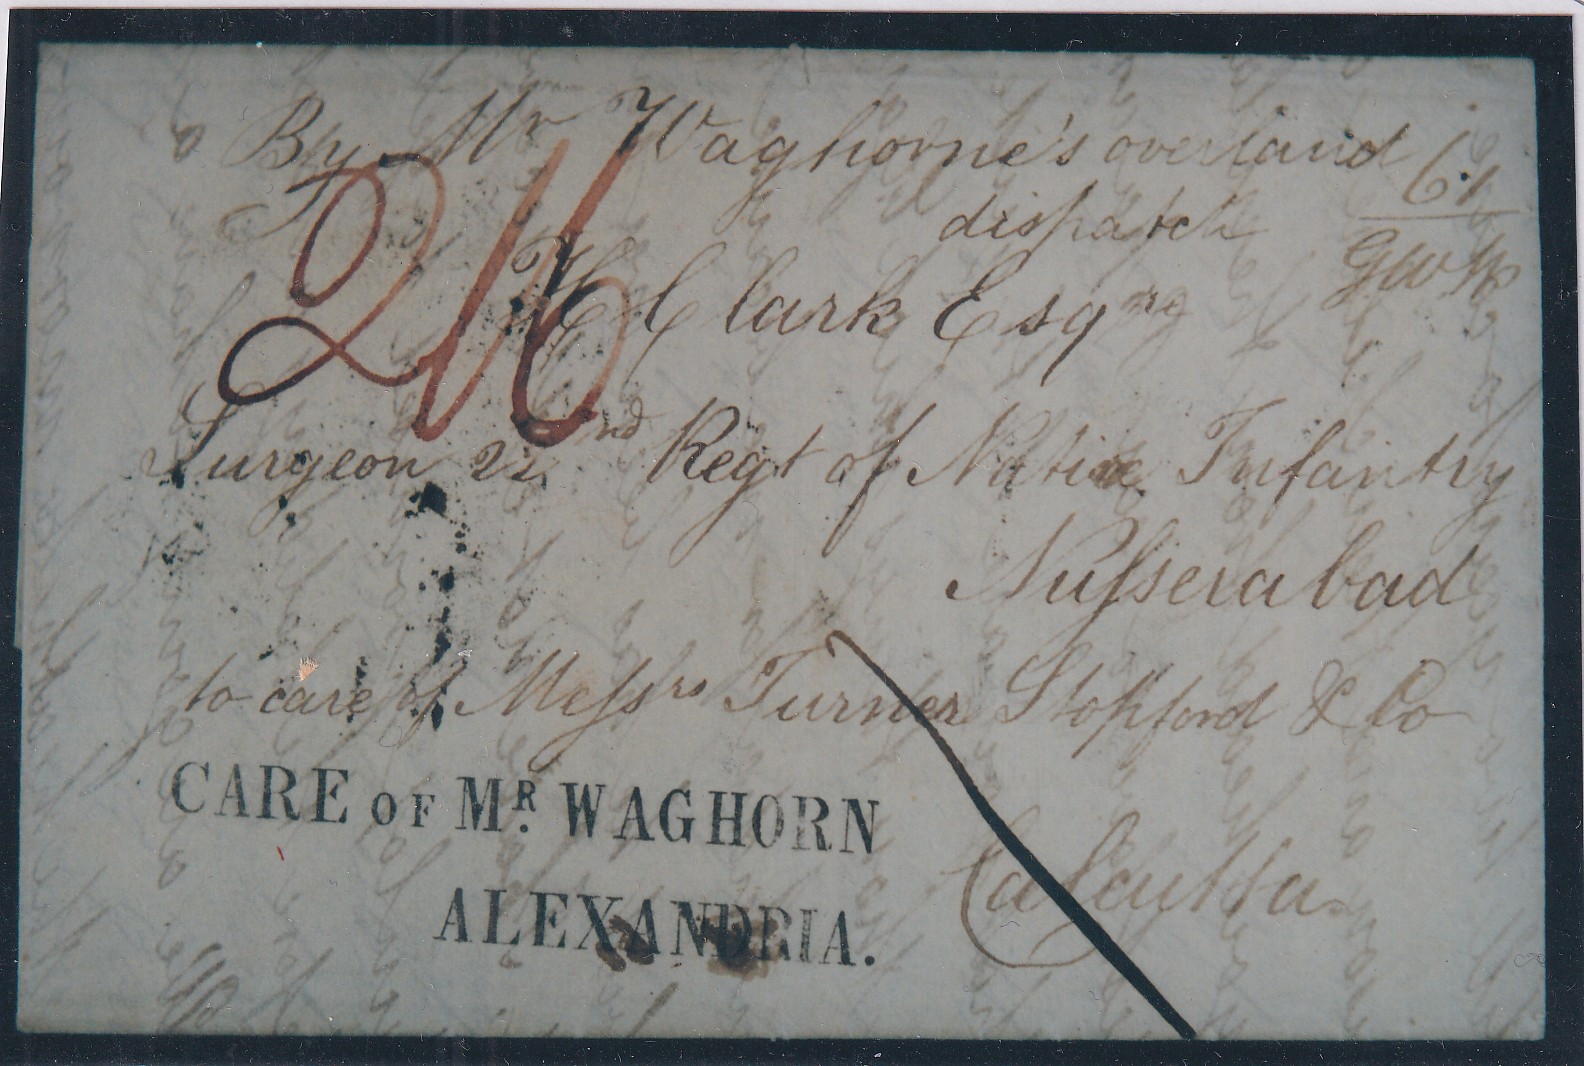 By Mr Waghorne's overland
dispatch
2/6
H Clark Esqre
Surgeon 22nd Regt of Native Infantry
Nusserabad
to care of Messrs Turner Stopford & Co
Calcutta
CARE OF MR. WAGHORN
ALEXANDRIA.